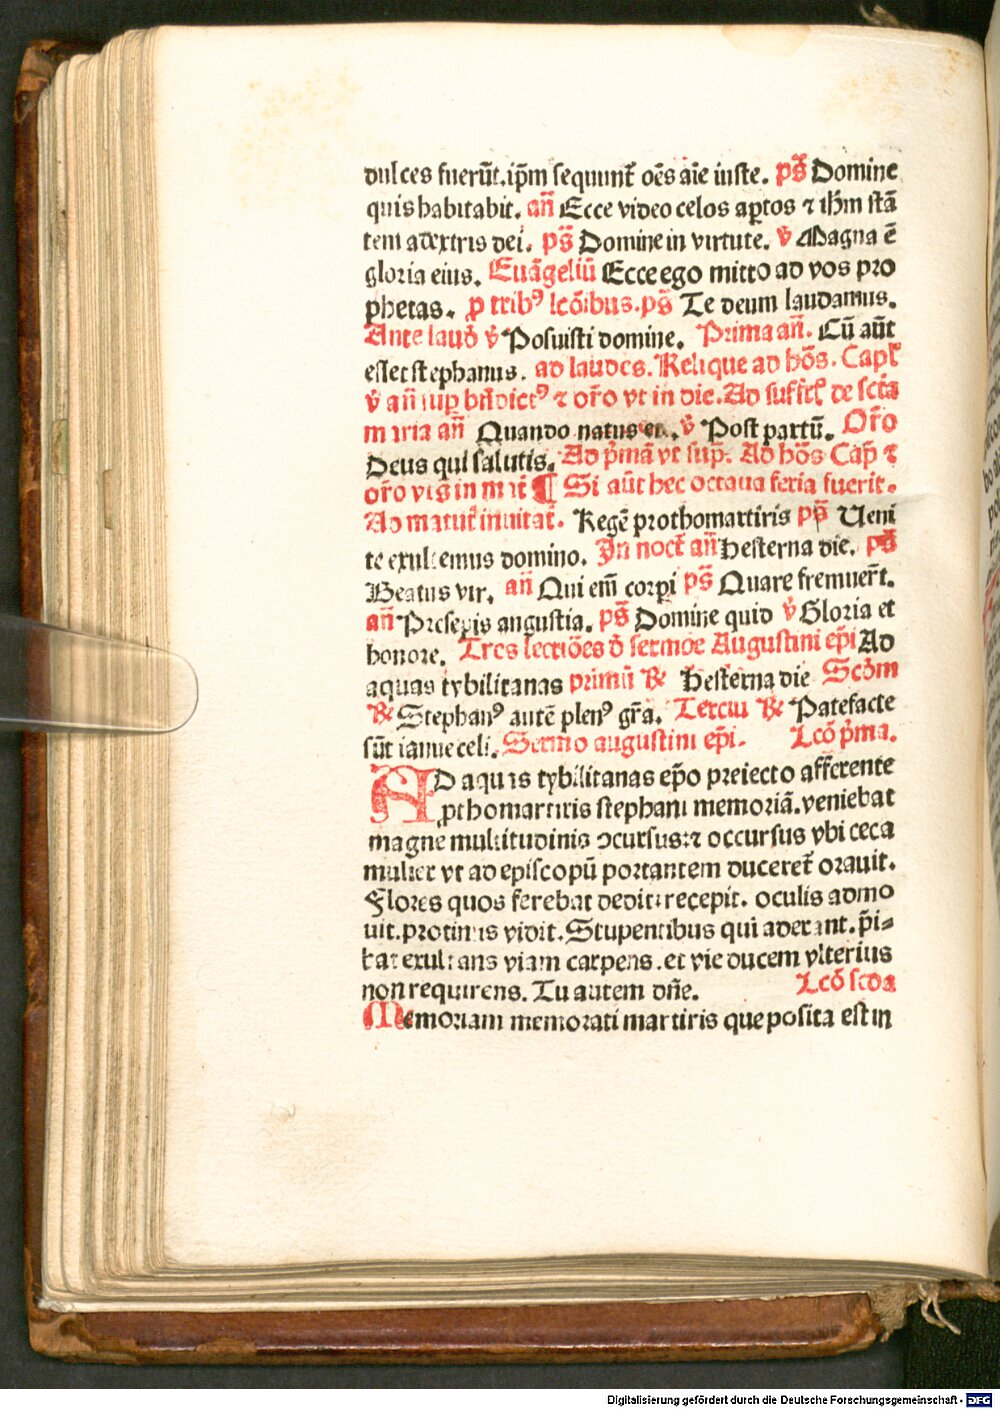 dulces fuerūt.ip̄m sequunt᷑ oēs aīe iuste. ps̄ Domine
quis habitabit. an̄ Ecce video celos ap̲tos ⁊ ihm̄ stā
tem adextris dei. ps̄ Domine in virtute. v̇ Magna ē
gloria eius. Euāgeliū Ecce ego mitto ad vos pro
phetas. p̲ tribꝰ lcōibus.ps̄ Te deum laudamus.
Ante laud᷑ v̇ Posuisti domine. Prima an̄. Cū aūt
esset stephanus. ad laudes. Relique ad hōs. Capl᷑
v̇ an̄ sup̲ bn̄dictꝰ ⁊ or̄o vt in die. Ad suffr᷑ de scta
maria an̄ Quando natus es. v̇ Post partū. Or̄o
Deus qui salutis. Ad p̄mā vt sup̄. Ad hōs Cap̄ ⁊
or̄o vt s in mat᷑ ¶ Si aūt hec octaua feria fuerit.
Ad matut᷑ inuitat᷑. Regē prothomartiris ps̄ Ueni
te exultemus domino. In noct᷑ an̄ Hesterna die. ps̄
Beatus vir. an̄ Qui em̄ corpi ps̄ Quare fremuer̄t.
an̄ Presepis angustia. ps̄ Domine quid v̇ Gloria et
honore. Tres lectiōes d̄ sermōe Augustini ep̄i Ad
aquas tybilitanas primū ℞ Hesterna die Scd̄m
℞ Stephanꝰ autē plenꝰ gr̄a. Terciū ℞ Patefacte
sūt ianue celi. Sermo augustini ep̄i. Lcō p̄ma.
AD aquas tybilitanas ep̄o preiecto afferente
p̲thomartiris stephani memoriā.veniebat
magne multitudinis ↄcursus:⁊ occursus vbi ceca
mulier vt ad episcopū portantem duceret᷑ orauit.
Flores quos ferebat dedit:recepit. oculis admo
uit.protinus vidit. Stupentibus qui aderant.p̄i-
bat exultans viam carpens.et vie ducem vlterius
non requirens. Tu autem dn̄e. Lcō scda
Memoriam memorati martiris que posita est in
Digitalisierung gefördert durch die Deutsche Forschungsgemeinschaft - DFG